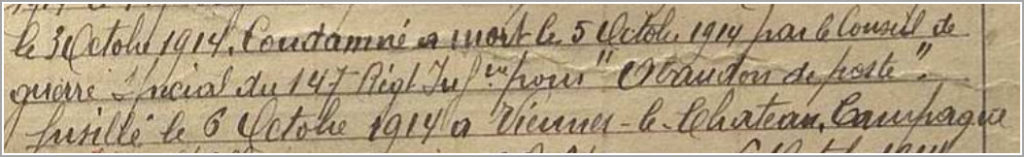 le 3 Octobre 1914. Condamné a mort le 5 Octobre 1914 par le Conseil de
guerre Spécial du 147 Régt Infrie pour " Abandon de poste ".
fusillé le 6 Octobre 1914 a Vienne-le-Chateau, Campagne